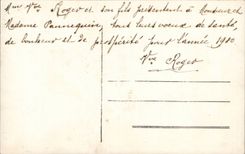 Mme Vve Roger et son fils présentent à Monsieur et
Madame Pannequin, tous leurs voeux de santé,
de bonheur et de prospérité pour l'année 1910
Vve Roger